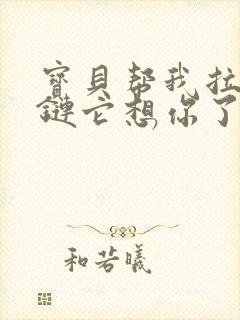 寶貝帮我拉
鏈它想你了
和若曦